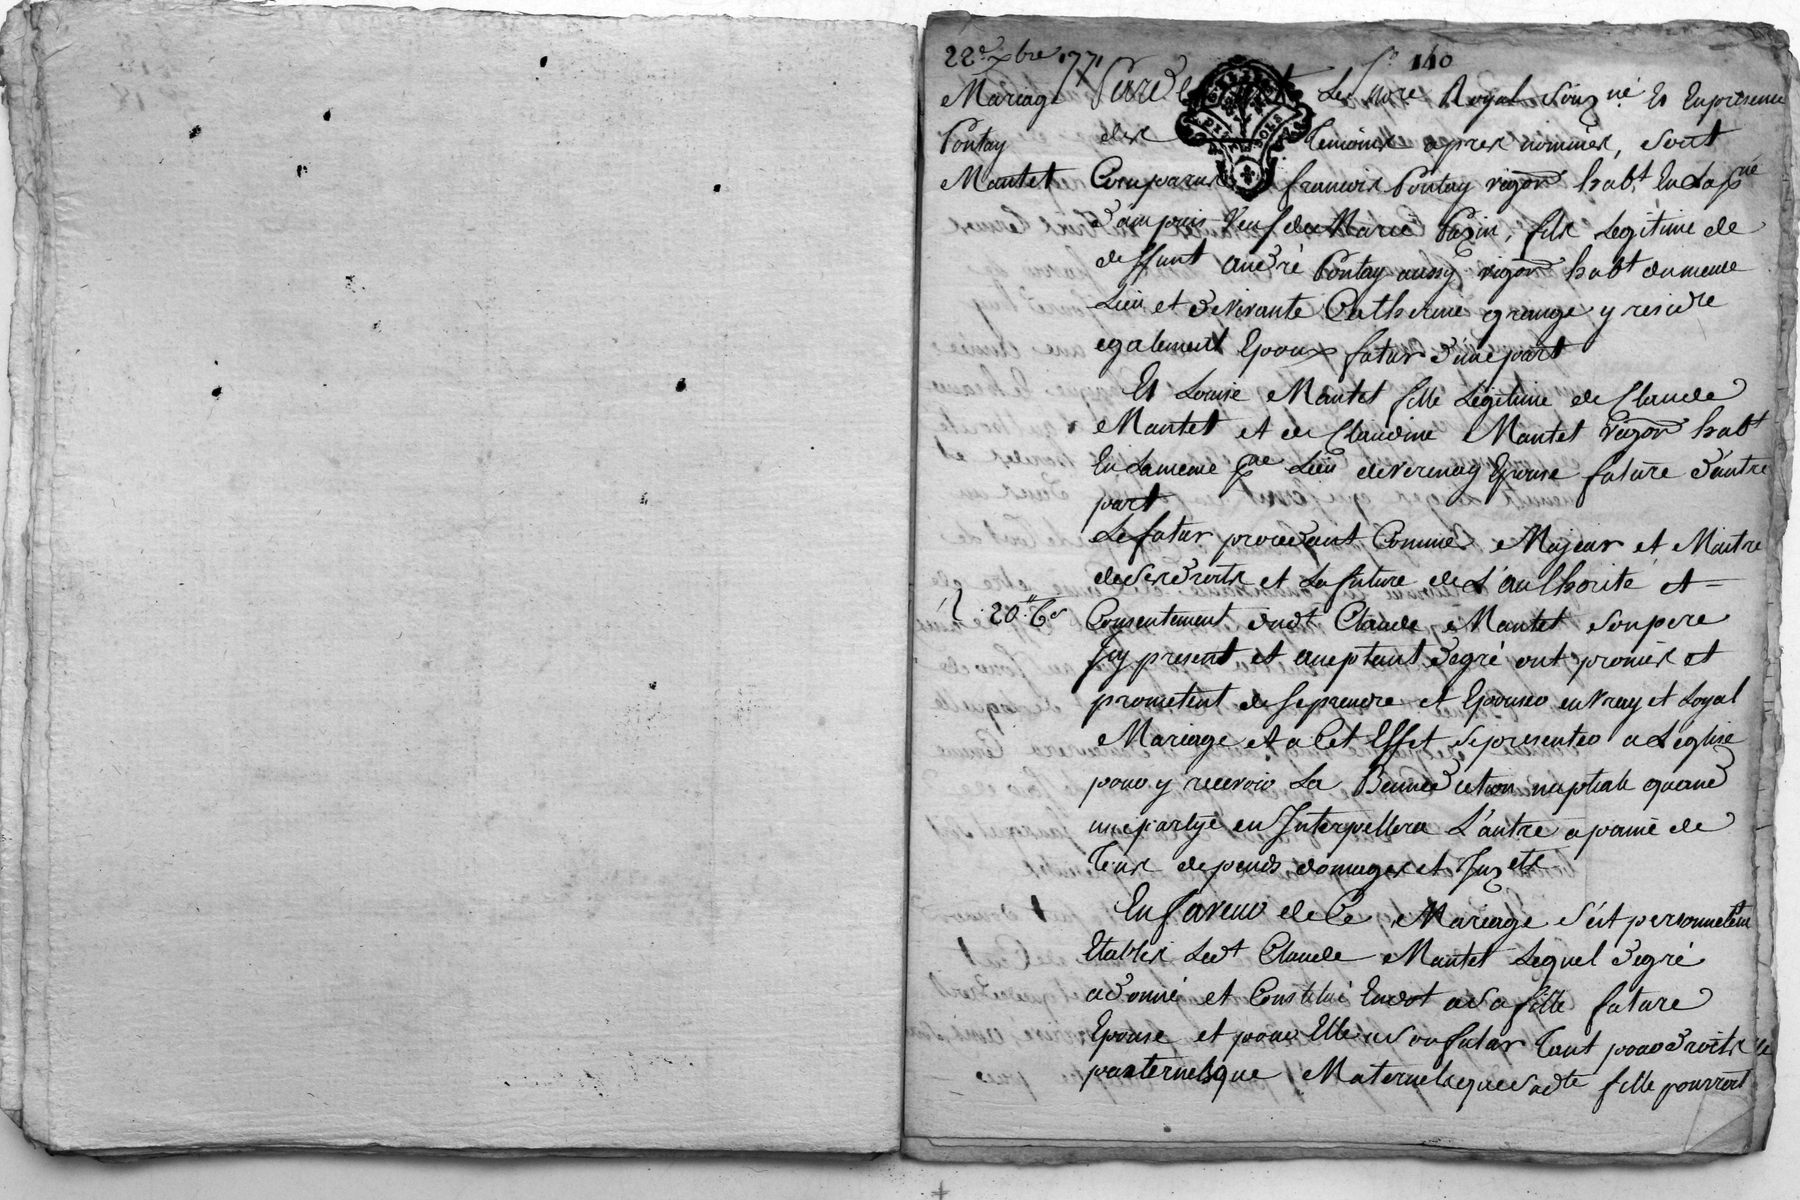 22e xbre 1771
fo 140
Mariage
Pontay
Mantet
Pardevant Le nore Royal souz né Et En presence
des temoins apres nommés, sont
Comparus francois Pontay vigon habt En La pne
d'ampuis veuf de Marie Pazin, fils Legitime de
deffunt andré Pontay aussy vigon habt du meme
Lieu et de vivante Catherine grange y reside
egalement Epoux futur d'une part
Et Louise Mantet fille Legitime de Claude
Mantet et de Claudine Mantet vigon habt
En La meme pne Lieu de verenay Epouse future d'autre
part
Le futur procedant Comme Majeur et Maitre
de ses droits et La future de L'authorité et =
20 6s
Consentement dudt Claude Mantet son pere
Icy present et aceptant de gré ont promis et
prometent de se prendre et Epouser en vray et Loyal
Mariage et a Cet Effet se presenter a L'eglise
pour y recevoir La Bennediction nuptiale quand
une partye en Interpellera L'autre a paine de
tous depends domages et Inzets
En faveur de Ce Mariage s'est personnelem
Etablis Ledt Claude Mantet Lequel de gré
a donné et Constitué En dot a sa fille future
Epouse et pour Elle a son futur tant pour droits
paternels que Maternels que sadte fille pourroit